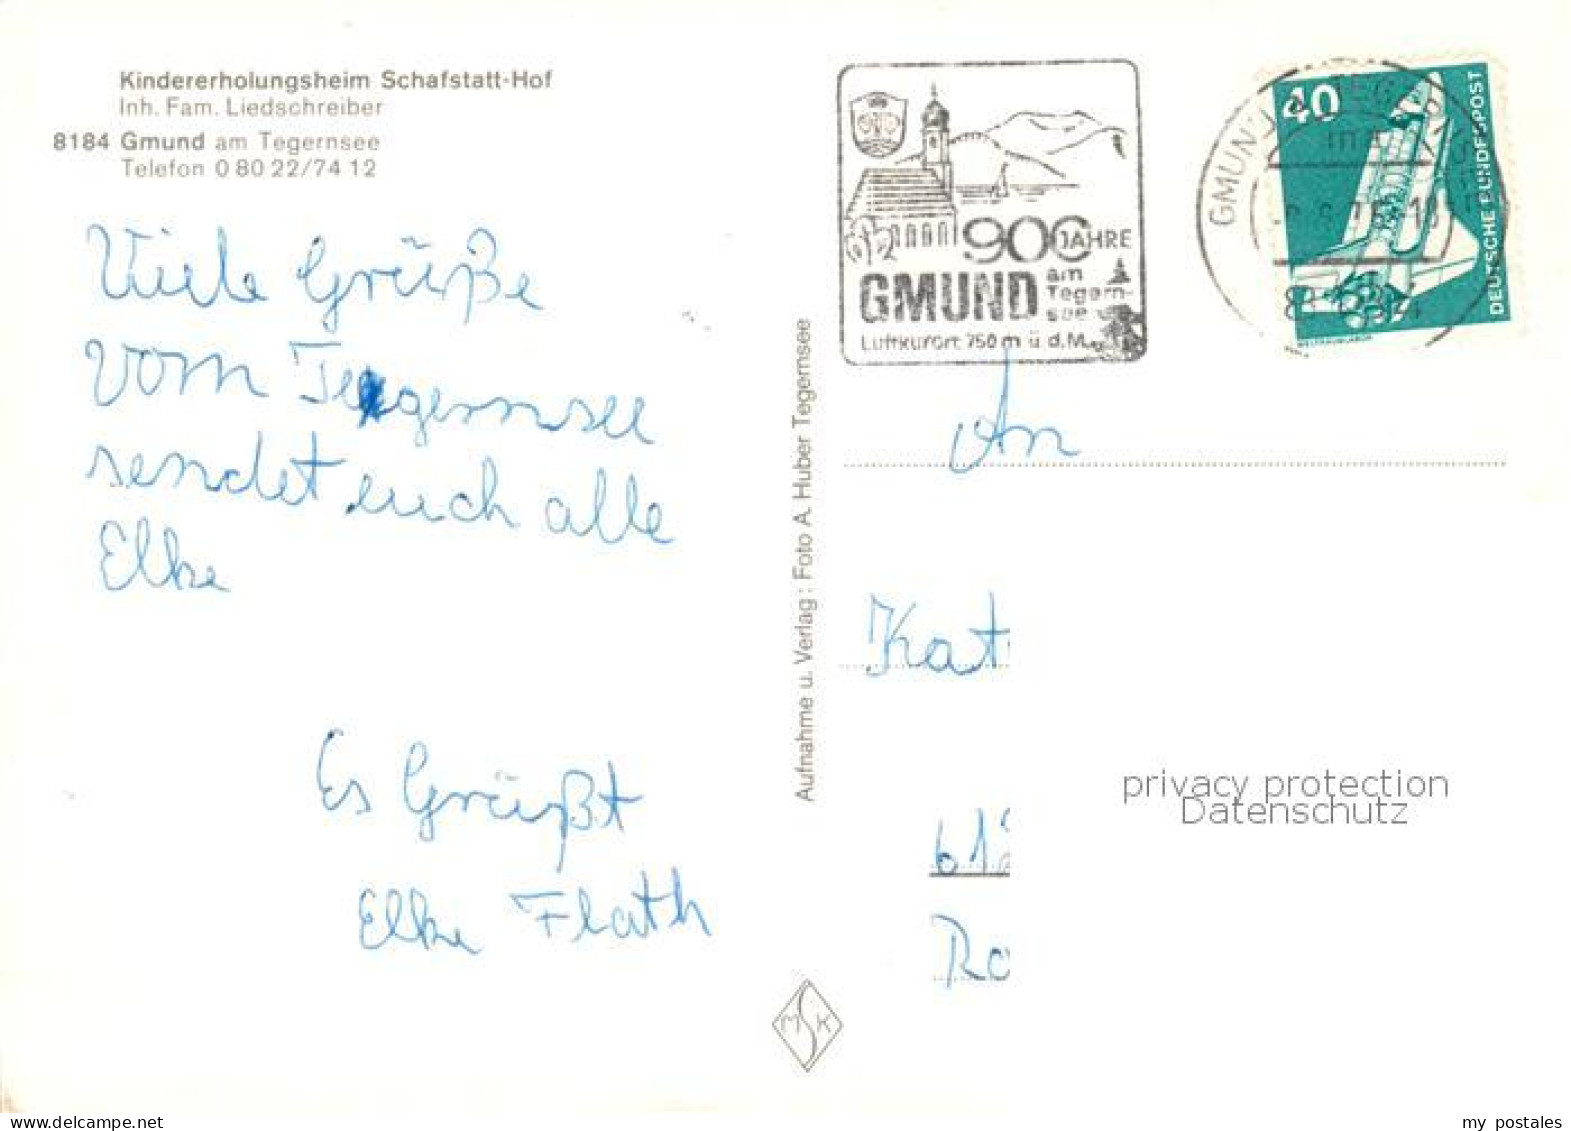 Kindererholungsheim Schafstatt-Hof
Inh. Fam. Liedschreiber
8184 Gmund am Tegernsee
Telefon 0 80 22/74 12
Viele Grüße
vom Tegernsee
sendet euch alle
Elke
Es Grüßt
Elke Flath
Aufnahme u. Verlag: Foto A. Huber Tegernsee
MSK
900 JAHRE
GMUND am
Tegern-
see
Luftkurort 750 m ü.d.M.
GMUND
40
DEUTSCHE BUNDESPOST
An
Kat
61
Ro
privacy protection
Datenschutz
delcampe.net
my_postales